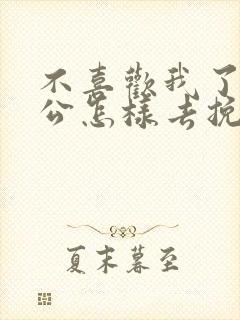 不喜歡我了
公怎樣去挽
夏末暮至